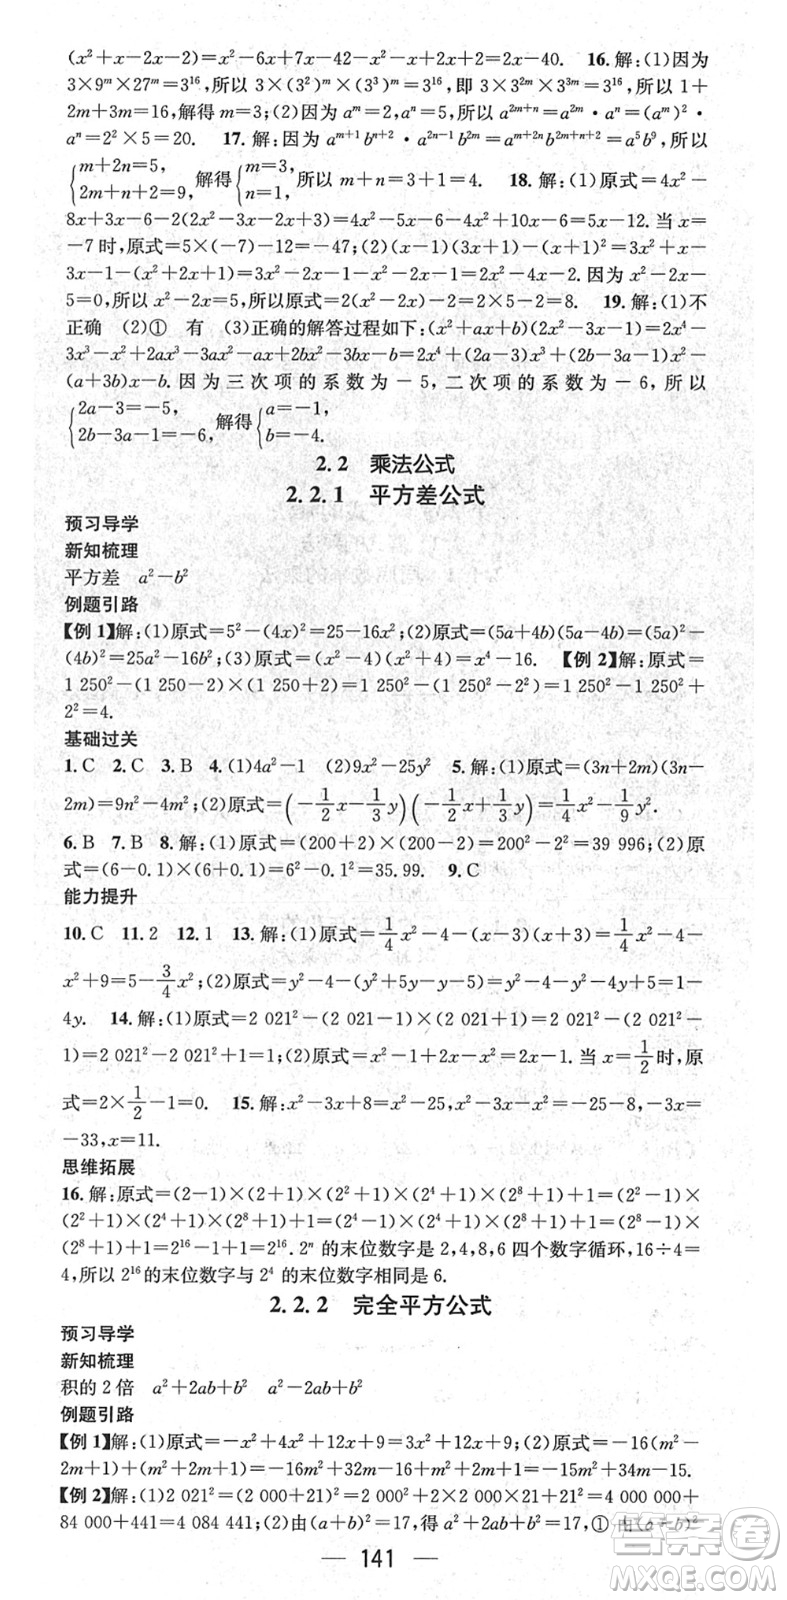 (x²+x-2x-2)=x²-6x+7x-42-x²-x+2x+2=2x-40. 16.解:(1)因为
3×9ᵐ×27ᵐ=3¹⁶,所以 3×(3²)ᵐ×(3³)ᵐ=3¹⁶,即 3×3²ᵐ×3³ᵐ=3¹⁶,所以 1+
2m+3m=16,解得 m=3;(2)因为 aᵐ=2,aⁿ=5,所以 a²ᵐ⁺ⁿ=a²ᵐ·aⁿ=(aᵐ)²·
aⁿ=2²×5=20. 17.解:因为 aᵐ⁺¹bⁿ⁺²·a²ⁿ⁻¹b²ᵐ=aᵐ⁺²ⁿb²ᵐ⁺ⁿ⁺²=a⁵b⁹,所以
{m+2n=5, 2m+n+2=9, 解得{m=3, n=1, 所以 m+n=3+1=4. 18.解:(1)原式=4x²-
8x+3x-6-2(2x²-3x-2x+3)=4x²-5x-6-4x²+10x-6=5x-12.当 x=
-7 时,原式=5×(-7)-12=-47;(2)(x-1)(3x+1)-(x+1)²=3x²+x-
3x-1-(x²+2x+1)=3x²-2x-1-x²-2x-1=2x²-4x-2.因为 x²-2x-
5=0,所以 x²-2x=5,所以原式=2(x²-2x)-2=2×5-2=8. 19.解:(1)不
正确 (2)① 有 (3)正确的解答过程如下:(x²+ax+b)(2x²-3x-1)=2x⁴-
3x³-x²+2ax³-3ax²-ax+2bx²-3bx-b=2x⁴+(2a-3)x³+(2b-3a-1)x²-
(a+3b)x-b.因为三次项的系数为-5,二次项的系数为-6,所以
{2a-3=-5, 2b-3a-1=-6, 解得{a=-1, b=-4.
2.2 乘法公式
2.2.1 平方差公式
预习导学
新知梳理
平方差 a²-b²
例题引路
【例 1】解:(1)原式=5²-(4x)²=25-16x²;(2)原式=(5a+4b)(5a-4b)=(5a)²-
(4b)²=25a²-16b²;(3)原式=(x²-4)(x²+4)=x⁴-16. 【例 2】解:原式=
1 250²-(1 250-2)×(1 250+2)=1 250²-(1 250²-2²)=1 250²-1 250²+
2²=4.
基础过关
1.C 2.C 3.B 4.(1)4a²-1 (2)9x²-25y² 5.解:(1)原式=(3n+2m)(3n-
2m)=9n²-4m²;(2)原式=(-1/2x-1/3y)(-1/2x+1/3y)=1/4x²-1/9y².
6.B 7.B 8.解:(1)原式=(200+2)×(200-2)=200²-2²=39 996;(2)原
式=(6-0.1)×(6+0.1)=6²-0.1²=35.99. 9.C
能力提升
10.C 11.2 12.1 13.解:(1)原式=1/4x²-4-(x-3)(x+3)=1/4x²-4-
x²+9=5-3/4x²;(2)原式=y²-4-(y²+5y-y-5)=y²-4-y²-4y+5=1-
4y. 14.解:(1)原式=2 021²-(2 021-1)×(2 021+1)=2 021²-(2 021²-
1)=2 021²-2 021²+1=1;(2)原式=x²-1+2x-x²=2x-1.当 x=1/2时,原
式=2×1/2-1=0. 15.解:x²-3x+8=x²-25,x²-3x-x²=-25-8,-3x=
-33,x=11.
思维拓展
16.解:原式=(2-1)×(2+1)×(2²+1)×(2⁴+1)×(2⁸+1)+1=(2²-1)×
(2²+1)×(2⁴+1)×(2⁸+1)+1=(2⁴-1)×(2⁴+1)×(2⁸+1)+1=(2⁸-1)×
(2⁸+1)+1=2¹⁶-1+1=2¹⁶.2ⁿ 的末位数字是 2,4,8,6 四个数字循环,16÷4=
4,所以 2¹⁶的末位数字与 2⁴ 的末位数字相同是 6.
2.2.2 完全平方公式
预习导学
新知梳理
积的 2 倍 a²+2ab+b² a²-2ab+b²
例题引路
【例 1】解:(1)原式=-x²+4x²+12x+9=3x²+12x+9;(2)原式=-16(m²-
2m+1)+(m²+2m+1)=-16m²+32m-16+m²+2m+1=-15m²+34m-15.
【例 2】解:(1)2 021²=(2 000+21)²=2 000²+2×2 000×21+21²=4 000 000+
84 000+441=4 084 441;(2)由(a+b)²=17,得 a²+2ab+b²=17,① 由(a-b)²
— 141 —
答案圈
MXQE.COM